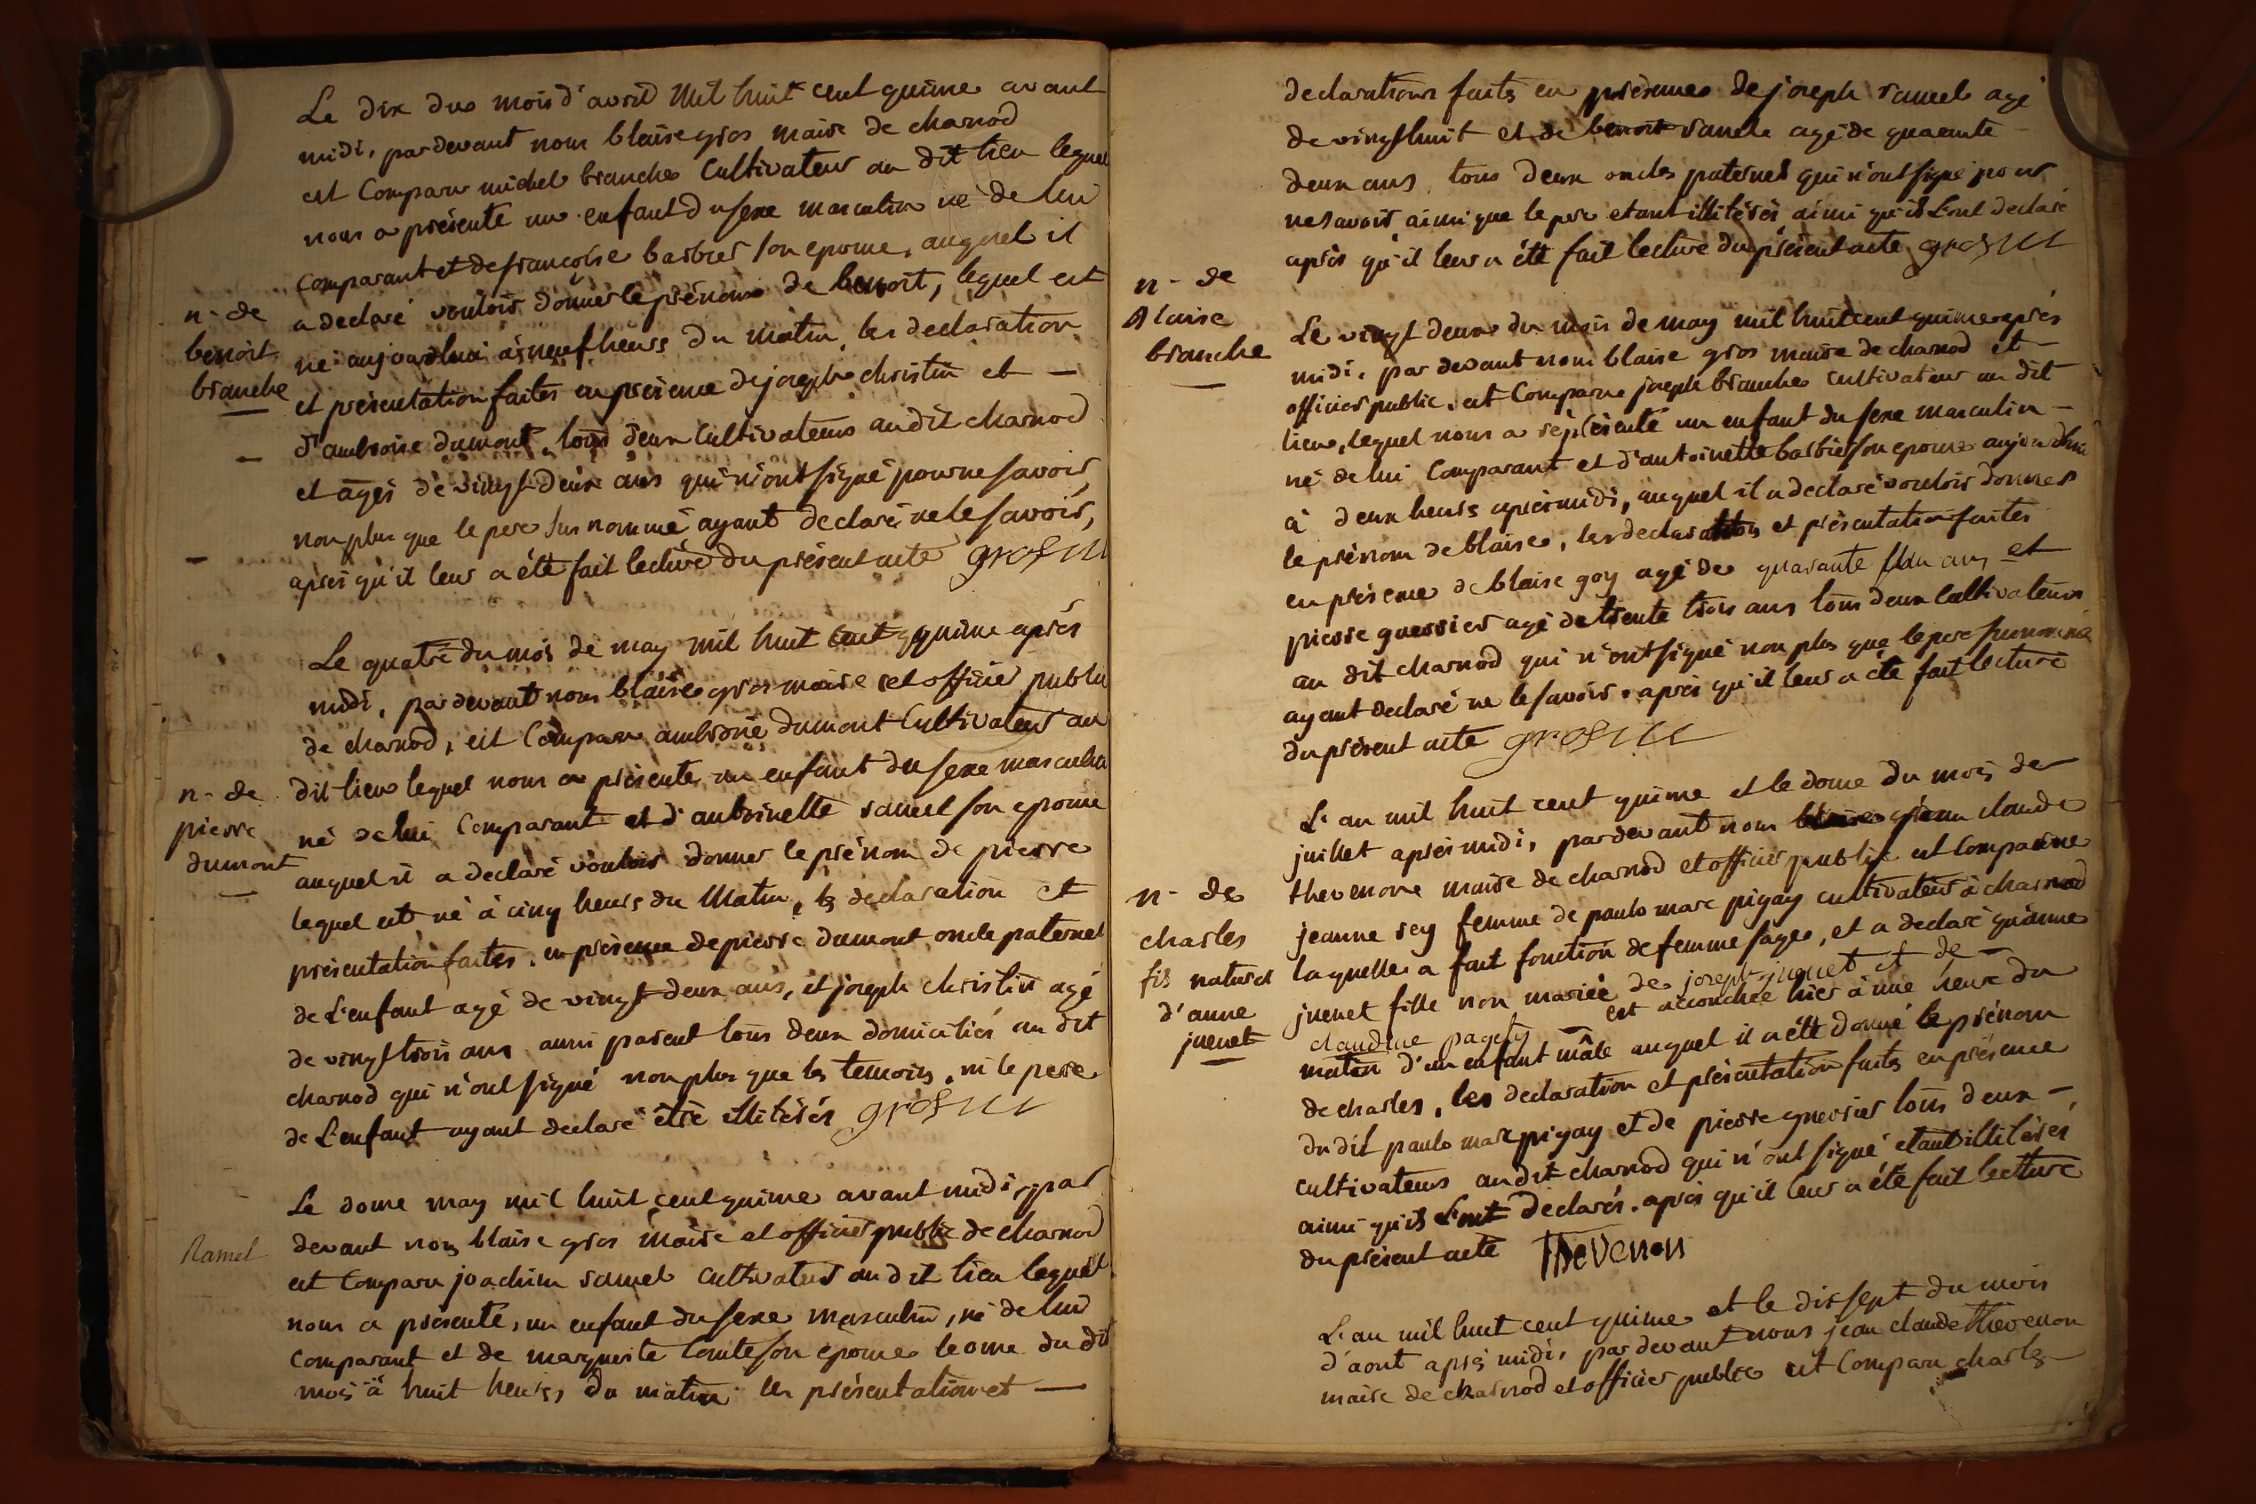 Le dix du mois d'avril mil huit cent quinze avant
midi, pardevant nous blaise gros maire de charnod
est Comparu michel branche Cultivateur au dit lieu lequel
nous a présenté un enfant du sexe masculin né de lui
Comparant et de françoise barbier son epouse, auquel il
a declaré vouloir donner le prénom de benoit, lequel est
n- de
benoit
branche
né aujourdhui à neuf heurs du matin, les declaration
et présentation faites en présence de joseph christin et —
d'ambroise dumont, tous deux Cultivateurs audit charnod
et agés de vingt-deux ans qui n'ont signé pour ne savoir,
non plus que le pere sus nommé, ayant declaré ne le savoir,
après qu'il leur a été fait lecture du présent acte gros m
Le quatre du mois de may mil huit cent quinze après
midi, pardevant nous blaise gros maire et officier public
de charnod, est Comparu ambroise dumont Cultivateur au
dit lieu lequel nous a présenté un enfant du sexe masculin
n- de
pierre
dumont
né de lui Comparant et d'antoinette ramel son epouse
auquel il a declaré vouloir donner le prénom de pierre
lequel est né à cinq heurs du matin, les declaration et
présentation faites, en présence de pierre dumont oncle paternel
de L'enfant agé de vingt deux ans, et joseph christin agé
de vingt trois ans aussi parent tous deux domiciliés au dit
charnod qui n'ont signé non plus que les temoins, ni le pere
de L'enfant ayant declaré être illitérés gros m
Le douze may mil huit cent quinze avant midi, par
devant nous blaise gros maire et officier public de charnod
Ramel
est Comparu joachim ramel cultivateur au dit lieu lequel
nous a présenté, un enfant du sexe masculin, né de lui
comparant et de marguerite Comte son epouse le onze du dit
mois à huit heurs, du matin. les présentation et —
declarations faits en présence de joseph ramel agé
de vingt huit et de benoit ramel agé de quarante
deux ans, tous deux oncles paternels qui n'ont signé pour
ne savoir ainsi que le pere etant illitérés ainsi qu'ils L'ont declaré
après qu'il leur a été fait lecture du présent acte gros m
n- de
blaise
branche
Le vingt deux du mois de may mil huit cent quinze après
midi, par devant nous blaise gros maire de charnod et
officier public, est Comparu joseph branche cultivateur au dit
lieu, lequel nous a représenté un enfant du sexe masculin —
né de lui Comparant et d'antoinette barbier son epouse aujourdhui
à deux heurs après midi, auquel il a declaré vouloir donner
le prénom de blaise, les declarations et présentation faites
en présence de blaise goy agé de quarante ans et
pierre guerrier agé de trente trois ans tous deux cultivateurs
au dit charnod qui n'ont signé non plus que le pere susnommé
ayant declaré ne le savoir, après qu'il leur a été fait lecture
du présent acte gros m
L'an mil huit cent quinze et le douze du mois de
juillet après midi, pardevant nous jean claude
thevenon maire de charnod et officier public est Comparue
n- de
charles
fils naturel
d'anne
juenet
jeanne rey femme de paul marc pigay cultivateur à charnod
laquelle a fait fonction de femme sage, et a declaré qu'anne
juenet fille non mariée de joseph juenet et de —
claudine pagety — est accouchée hier à une heure du
matin d'un enfant mâle auquel il a été donné le prénom
de charles, les declaration et présentation faits en présence
du dit paul marc pigay et de pierre guerrier tous deux —
cultivateurs audit charnod qui n'ont signé etant illitérés
ainsi qu'ils L'ont declarés. après qu'il leur a été fait lecture
du présent acte Thevenon
L'an mil huit cent quinze et le dix sept du mois
d'aout après midi, par devant nous jean claude thevenon
maire de charnod et officier public est Comparu charles